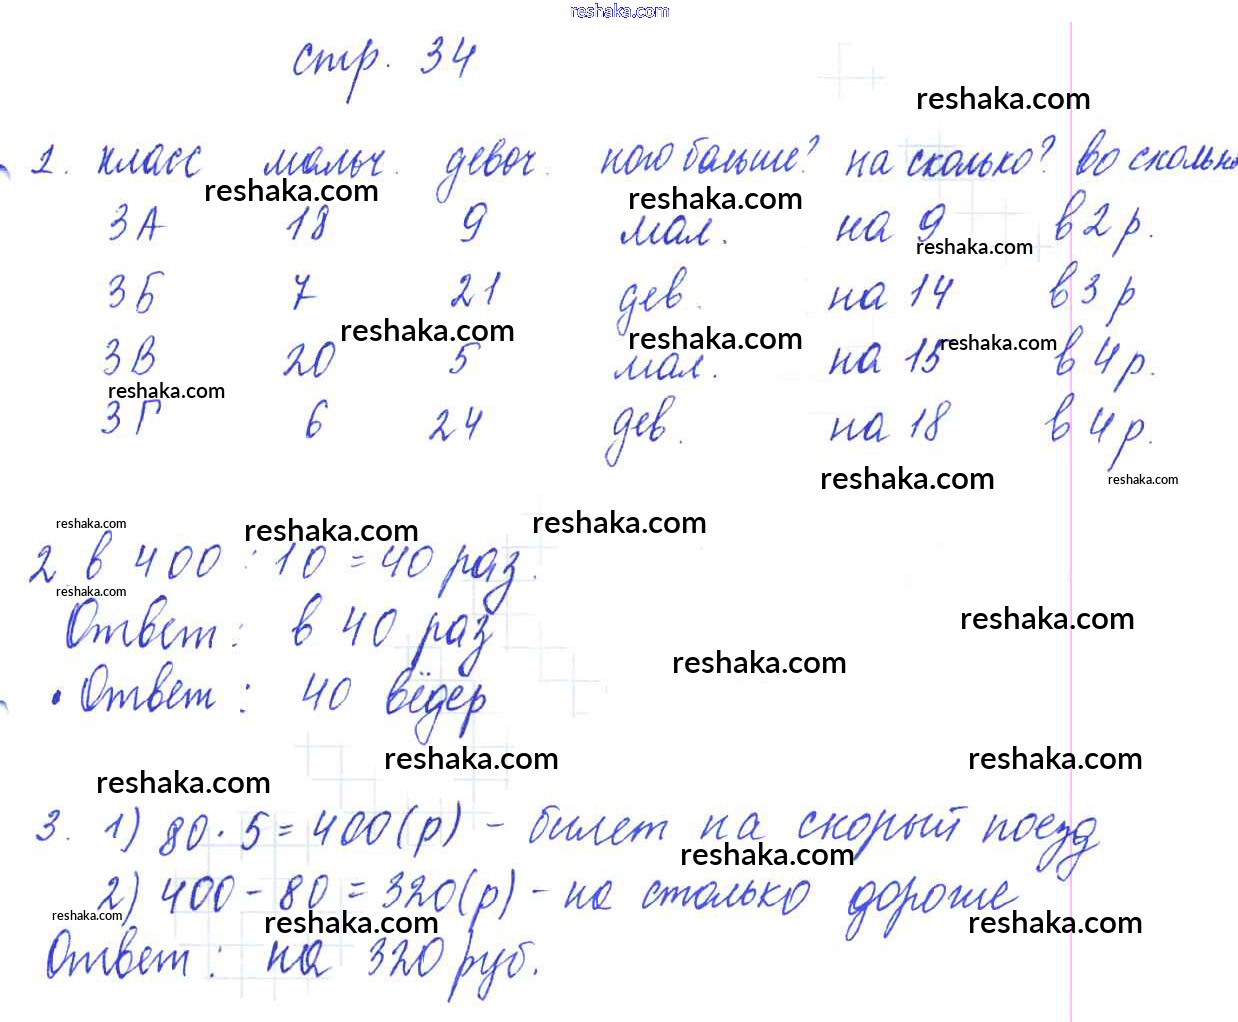 reshaka.com
стр. 34
reshaka.com
1. класс мальч. девоч. кого больше? на сколько? во сколько
reshaka.com reshaka.com
3А 18 9 мал. на 9 в 2 р.
reshaka.com
3Б 7 21 дев. на 14 в 3 р
reshaka.com reshaka.com reshaka.com
3В 20 5 мал. на 15 в 4 р.
reshaka.com
3Г 6 24 дев. на 18 в 4 р.
reshaka.com reshaka.com
reshaka.com reshaka.com reshaka.com
2 в 400 : 10 = 40 раз.
reshaka.com
Ответ: в 40 раз
reshaka.com
reshaka.com
• Ответ: 40 вёдер
reshaka.com reshaka.com
reshaka.com
3. 1) 80 · 5 = 400 (р) - билет на скорый поезд
reshaka.com
2) 400 - 80 = 320 (р) - на столько дороже
reshaka.com reshaka.com reshaka.com
Ответ: на 320 руб.